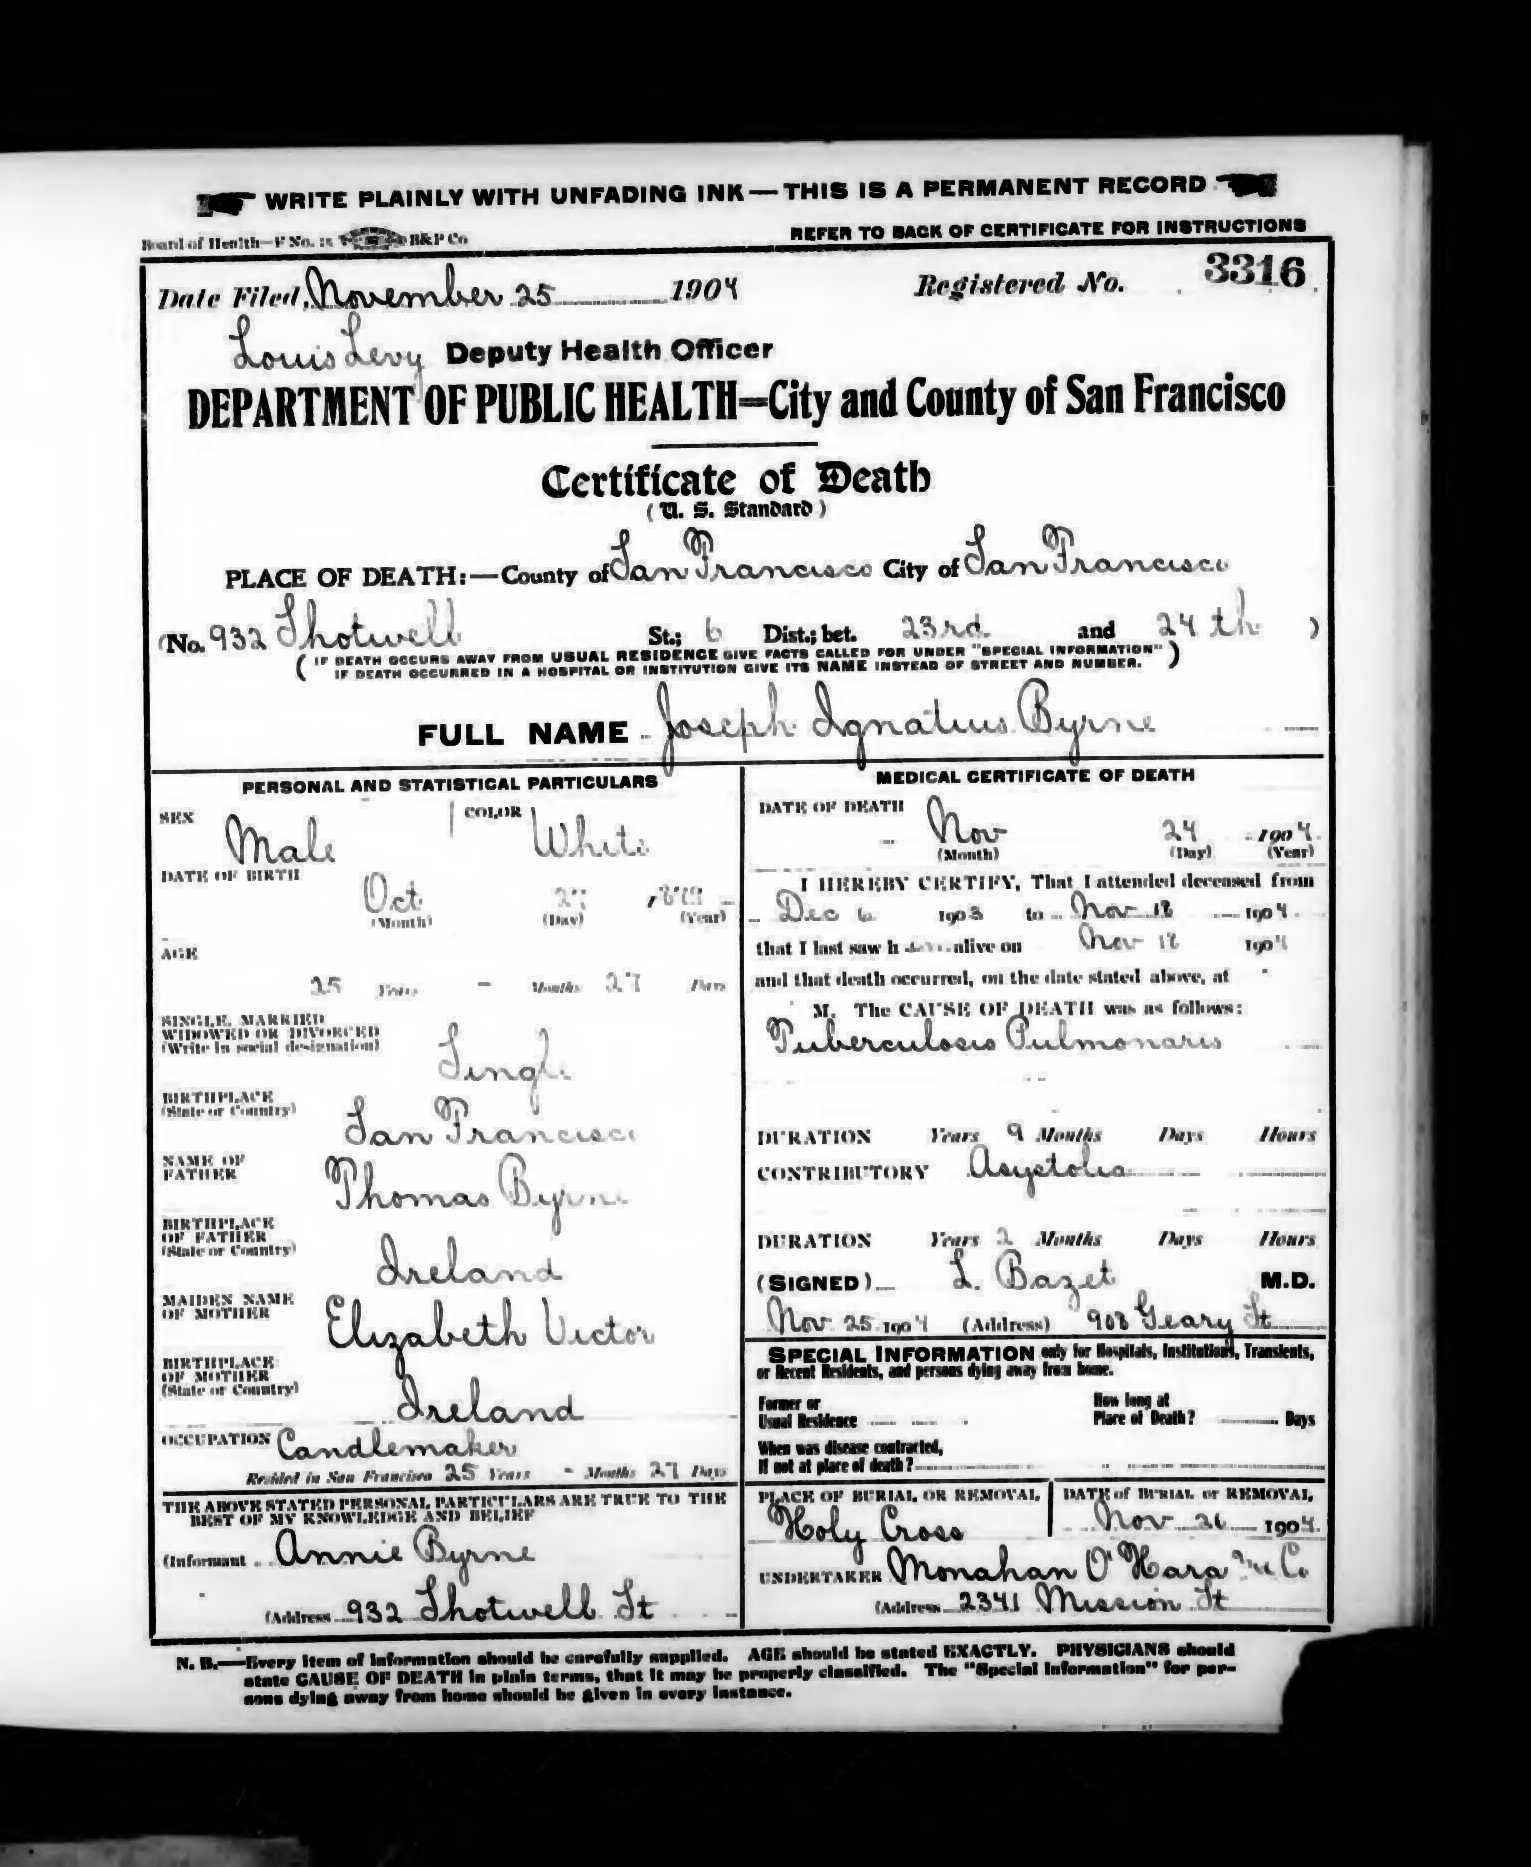 WRITE PLAINLY WITH UNFADING INK — THIS IS A PERMANENT RECORD
Board of Health—F No. 15 B&P Co
REFER TO BACK OF CERTIFICATE FOR INSTRUCTIONS
Date Filed, November 25 1904 Registered No. 3316
Louis Levy Deputy Health Officer
DEPARTMENT OF PUBLIC HEALTH=City and County of San Francisco
Certificate of Death
(U. S. Standard)
PLACE OF DEATH:—County of San Francisco City of San Francisco
(No. 932 Shotwell St.; 6 Dist.; bet. 23rd and 24th )
(IF DEATH OCCURS AWAY FROM USUAL RESIDENCE GIVE FACTS CALLED FOR UNDER "SPECIAL INFORMATION"
IF DEATH OCCURRED IN A HOSPITAL OR INSTITUTION GIVE ITS NAME INSTEAD OF STREET AND NUMBER.)
FULL NAME Joseph Ignatius Byrne
PERSONAL AND STATISTICAL PARTICULARS
SEX Male COLOR White
DATE OF BIRTH
Oct 27 1879
(Month) (Day) (Year)
AGE
25 Years - Months 27 Days
SINGLE, MARRIED
WIDOWED OR DIVORCED
(Write in social designation)
Single
BIRTHPLACE
(State or Country)
San Francisco
NAME OF
FATHER
Thomas Byrne
BIRTHPLACE
OF FATHER
(State or Country)
Ireland
MAIDEN NAME
OF MOTHER
Elizabeth Victor
BIRTHPLACE
OF MOTHER
(State or Country)
Ireland
OCCUPATION Candlemaker
Resided in San Francisco 25 Years - Months 27 Days
THE ABOVE STATED PERSONAL PARTICULARS ARE TRUE TO THE
BEST OF MY KNOWLEDGE AND BELIEF
(Informant Annie Byrne
(Address 932 Shotwell St
MEDICAL CERTIFICATE OF DEATH
DATE OF DEATH
Nov 24 1904
(Month) (Day) (Year)
I HEREBY CERTIFY, That I attended deceased from
Dec 6 1903 to Nov 18 1904
that I last saw h alive on Nov 18 1904
and that death occurred, on the date stated above, at
M. The CAUSE OF DEATH was as follows:
Tuberculosis Pulmonaris
DURATION Years 9 Months Days Hours
CONTRIBUTORY Asystolia
DURATION Years 2 Months Days Hours
(SIGNED) L. Bazet M.D.
Nov 25 1904 (Address) 908 Geary St
SPECIAL INFORMATION only for Hospitals, Institutions, Transients,
or Recent Residents, and persons dying away from home.
Former or
Usual Residence
How long at
Place of Death? Days
When was disease contracted,
If not at place of death?
PLACE OF BURIAL OR REMOVAL
Holy Cross
DATE of BURIAL or REMOVAL
Nov 26 1904
UNDERTAKER Monahan O'Hara & Co
(Address 2341 Mission St
N. B.—Every item of information should be carefully supplied. AGE should be stated EXACTLY. PHYSICIANS should
state CAUSE OF DEATH in plain terms, that it may be properly classified. The "Special Information" for per-
sons dying away from home should be given in every instance.